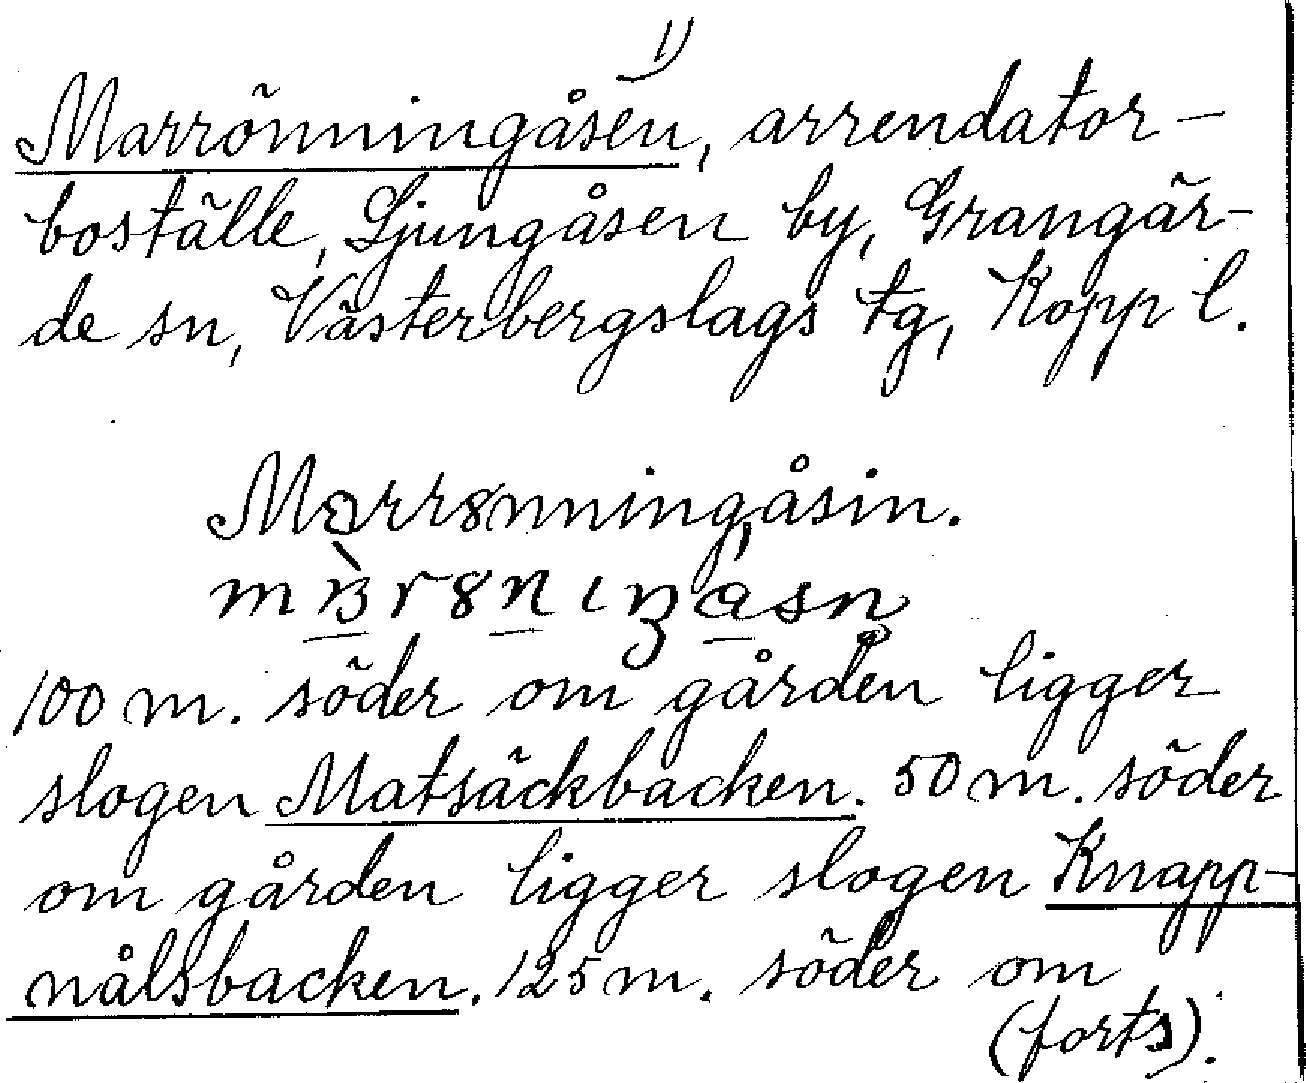 1)
Marrönningåsen, arrendator-
boställe, Ljungåsen by, Grangär-
de sn, Västerbergslags tg, Kopp l.
Marrønningåsin.
100 m. söder om gården ligger
slogen Matsäckbacken. 50 m. söder
om gården ligger slogen Knapp-
nålsbacken. 125 m. söder om
(forts).